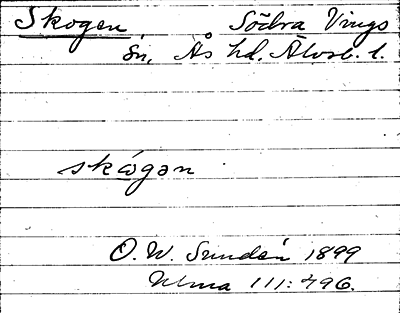 Skogen Södra Vings
sn, Ås hd. Älvsb. l.
skógən
O. W. Sundén 1899
Ulma 111:496.